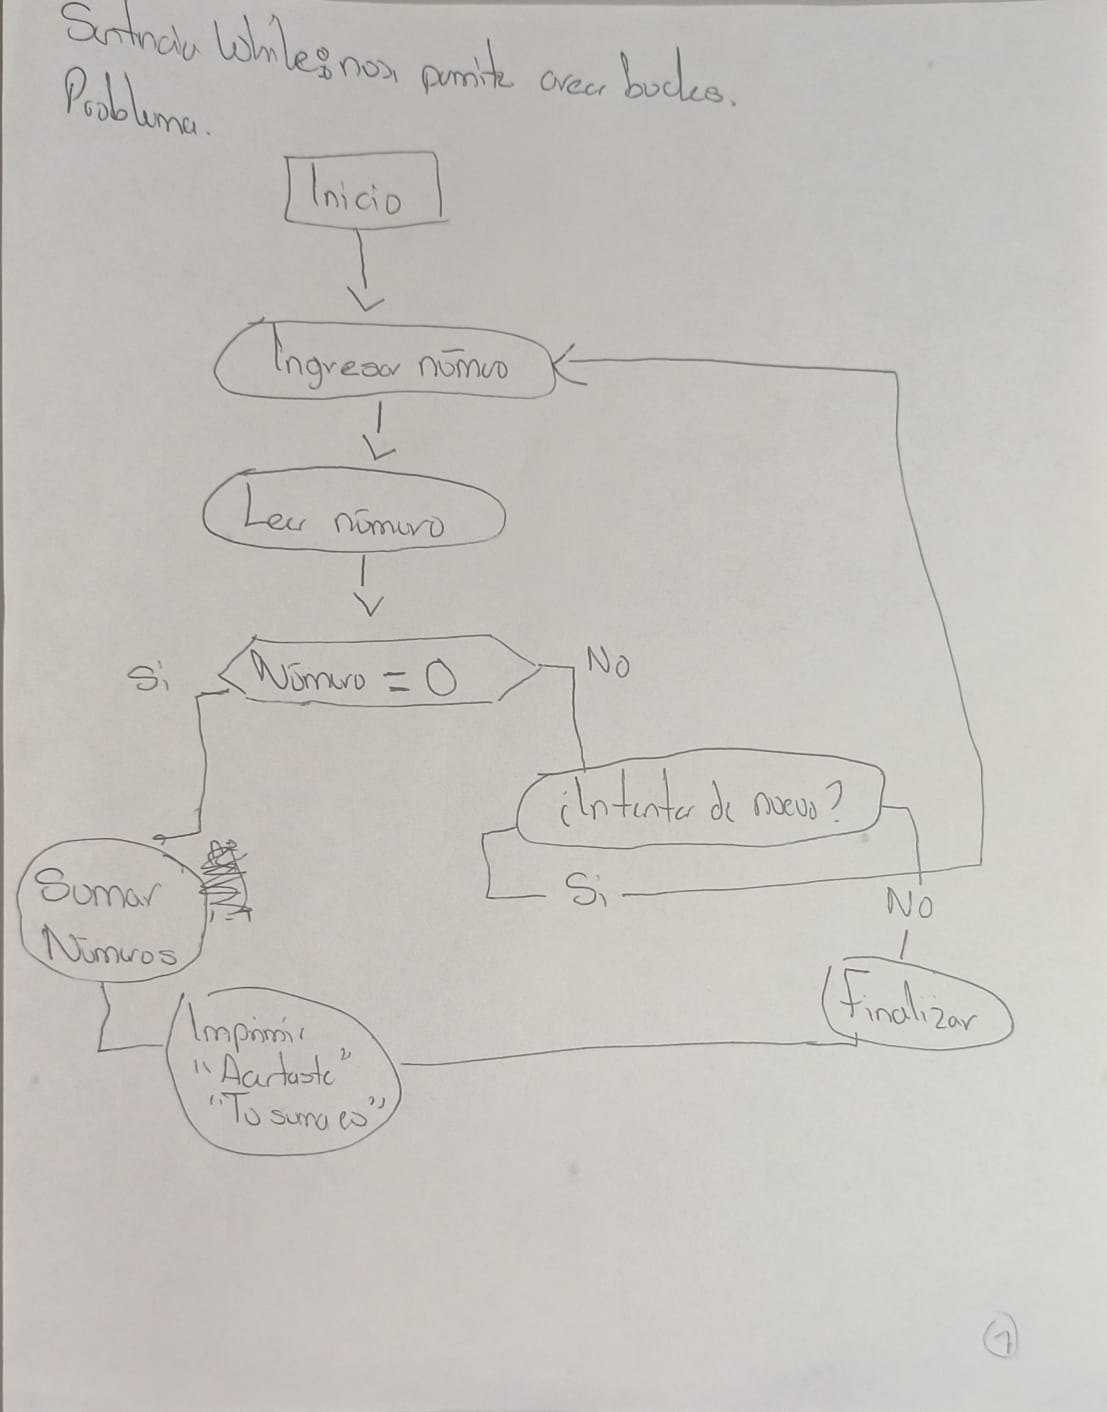 Sentencia While: nos permite crear bucles.
Problema.
Inicio
Ingresar número
Leer número
Número = 0
Si
No
¿Intentar de nuevo?
Si
No
Sumar
Números
Finalizar
Imprimir
"Acertaste"
"Tu suma es"
1